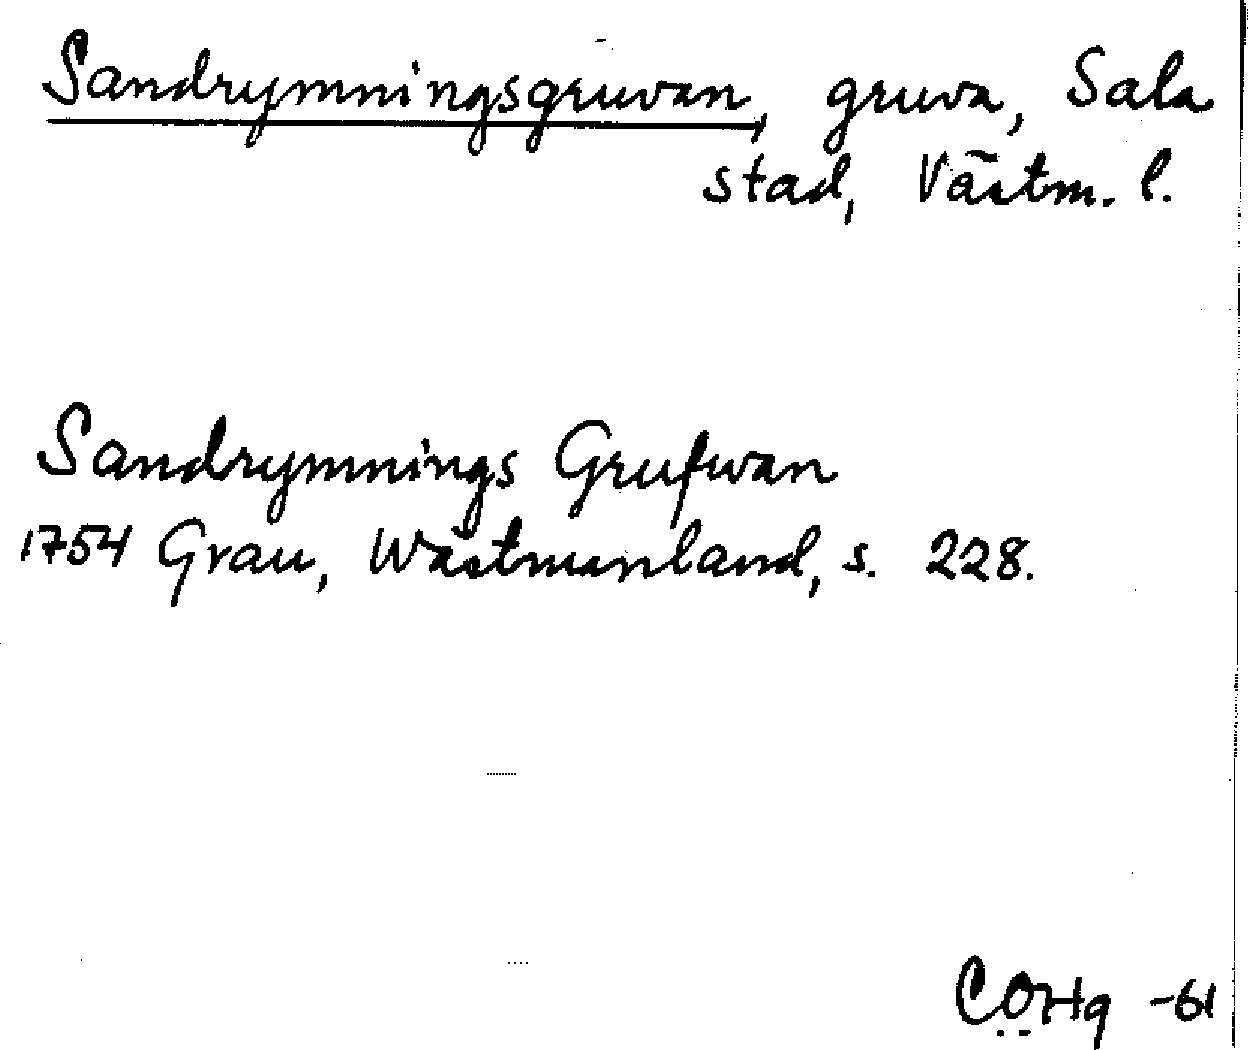 Sandrymningsgruvan, gruva, Sala
stad, Västm. l.
Sandrymnings Grufwan
1754 Grau, Wästmanland, s. 228.
-61